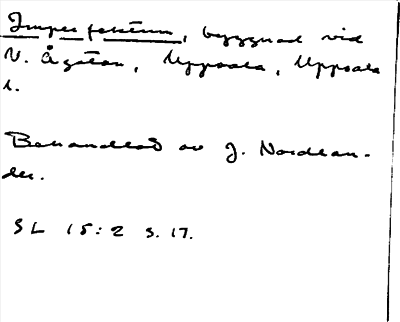 Imperfektum, byggnad vid
V. Ågatan, Uppsala, Uppsala
l.
Behandlad av J. Nordlan-
der.
SL 15:2 s. 17.